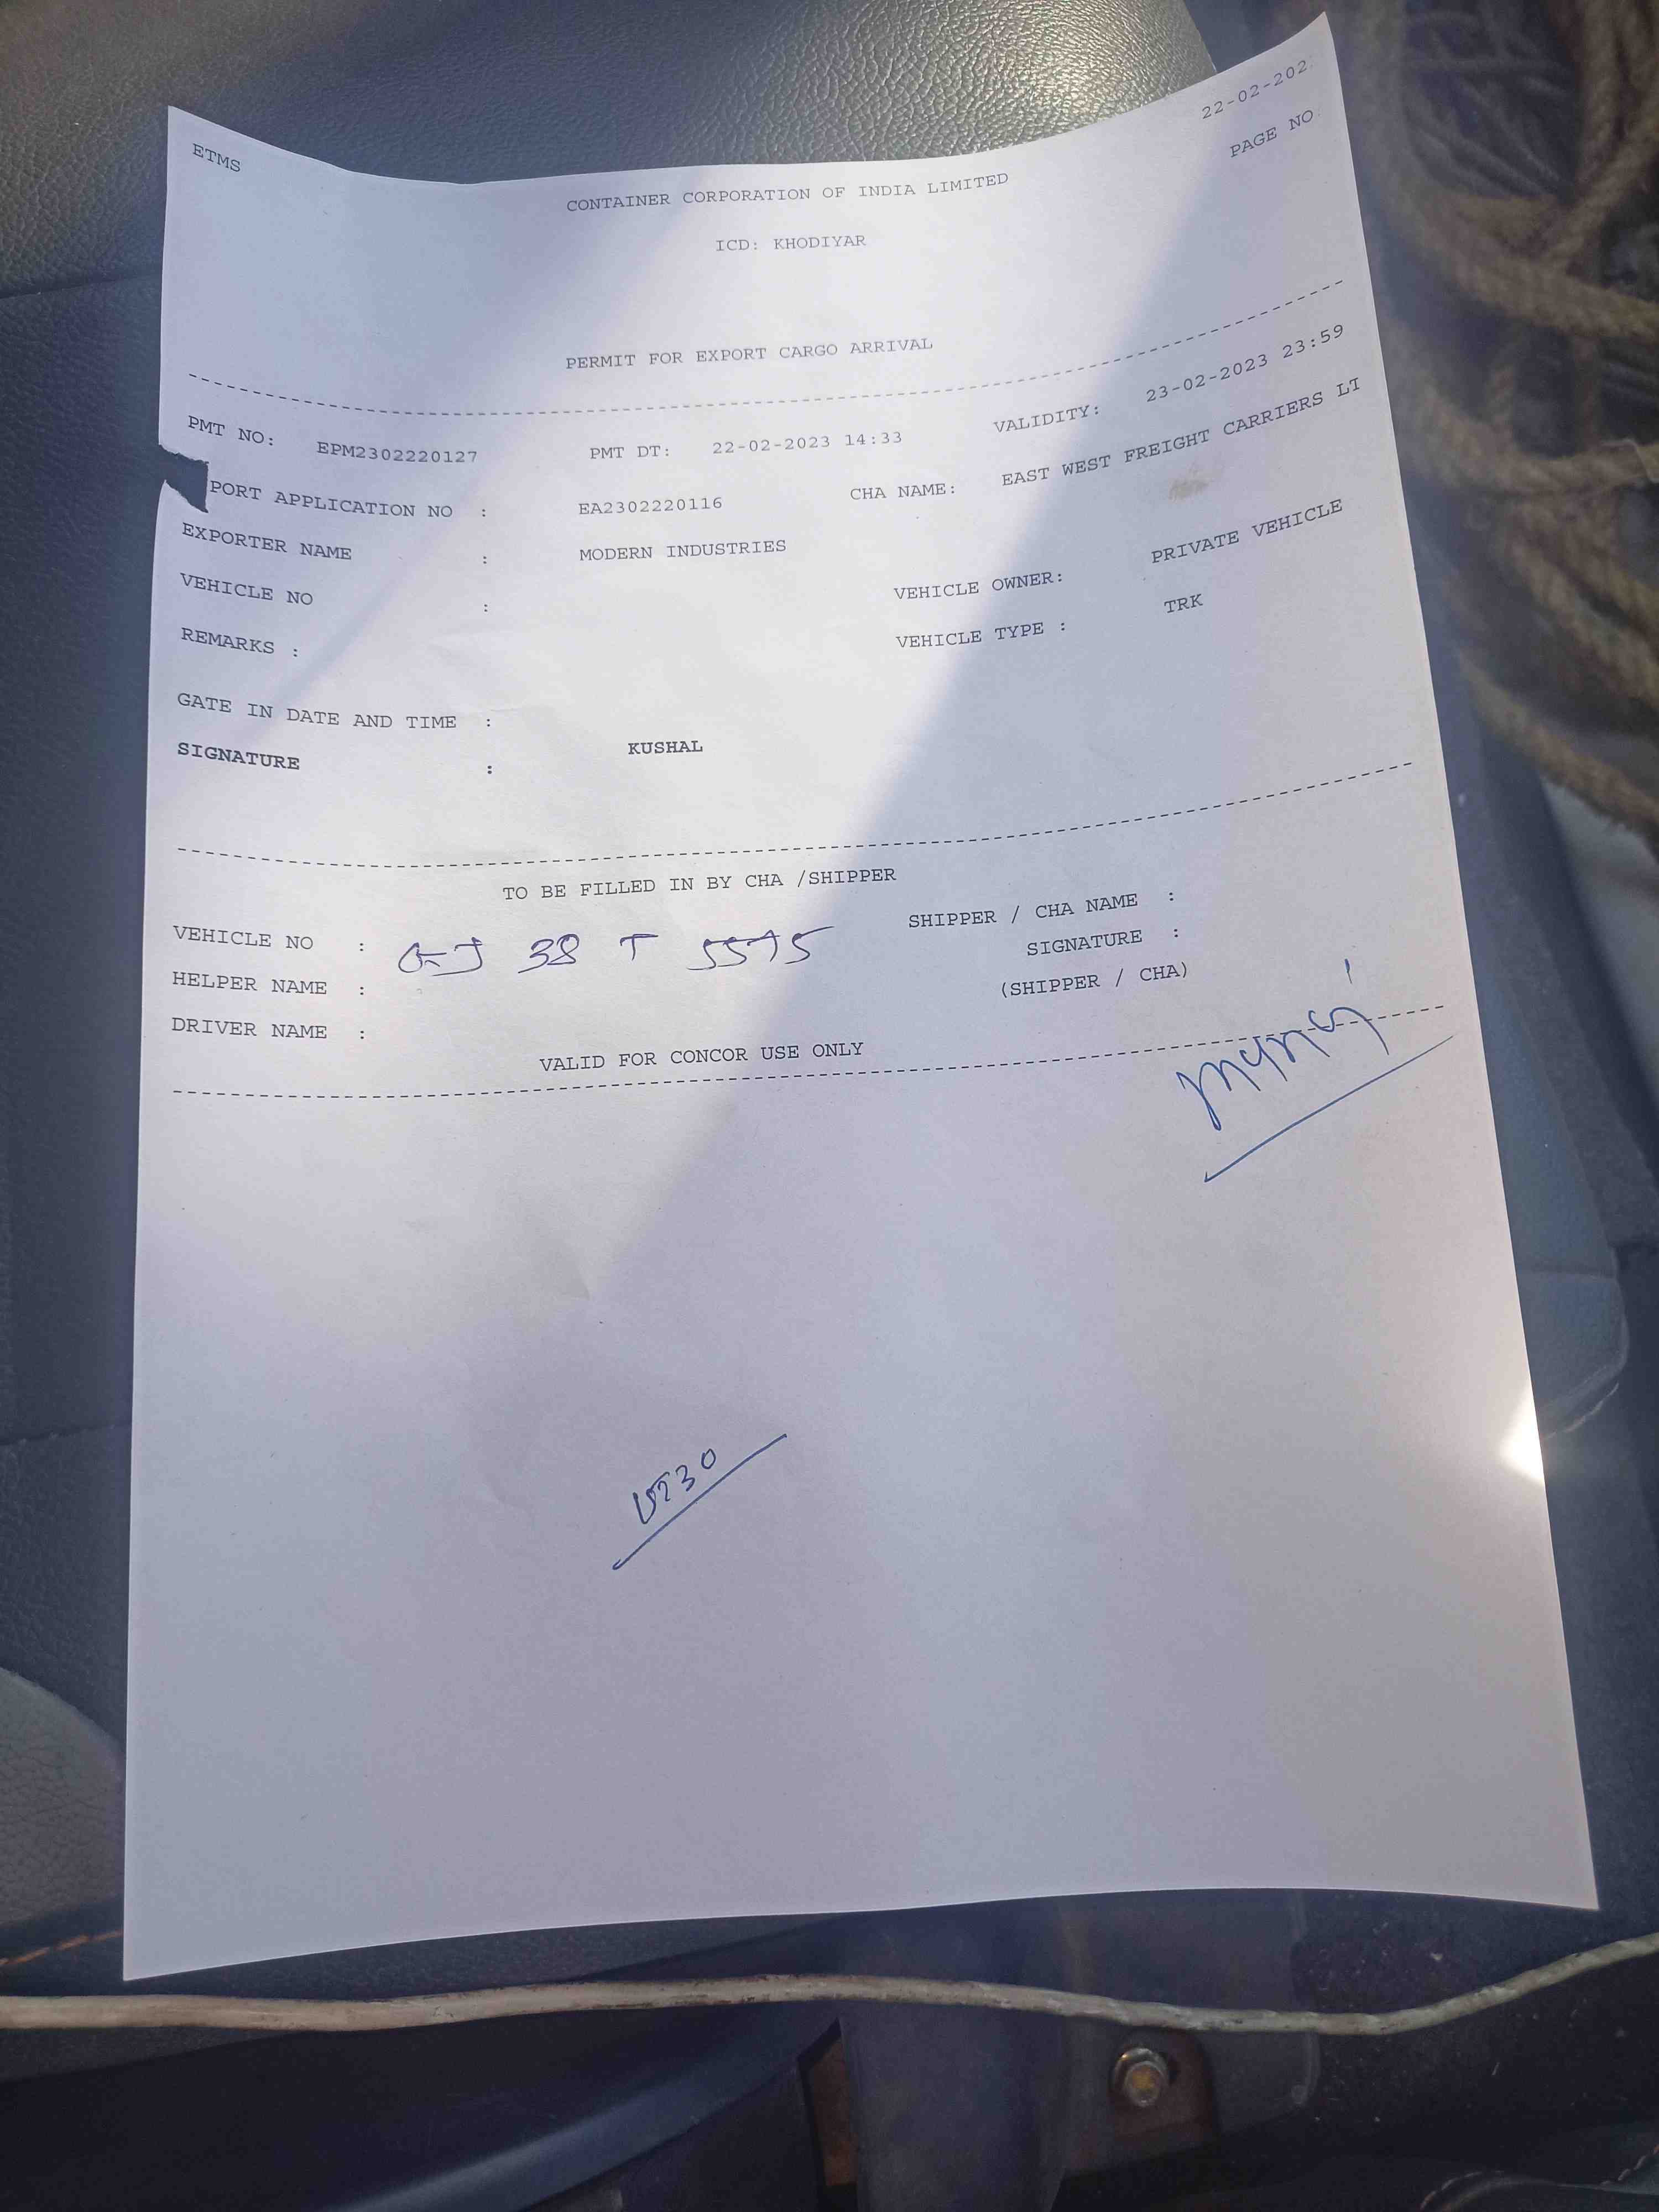 22-02-202
ETMS
PAGE NO
CONTAINER CORPORATION OF INDIA LIMITED
ICD: KHODIYAR
PERMIT FOR EXPORT CARGO ARRIVAL
PMT NO: EPM2302220127 PMT DT: 22-02-2023 14:33 VALIDITY: 23-02-2023 23:59
PORT APPLICATION NO : EA2302220116 CHA NAME: EAST WEST FREIGHT CARRIERS LT
EXPORTER NAME : MODERN INDUSTRIES
VEHICLE NO : VEHICLE OWNER: PRIVATE VEHICLE
REMARKS : VEHICLE TYPE : TRK
GATE IN DATE AND TIME :
SIGNATURE : KUSHAL
TO BE FILLED IN BY CHA /SHIPPER
VEHICLE NO : GJ 38 T 5575 SHIPPER / CHA NAME :
HELPER NAME : SIGNATURE :
DRIVER NAME : (SHIPPER / CHA)
VALID FOR CONCOR USE ONLY